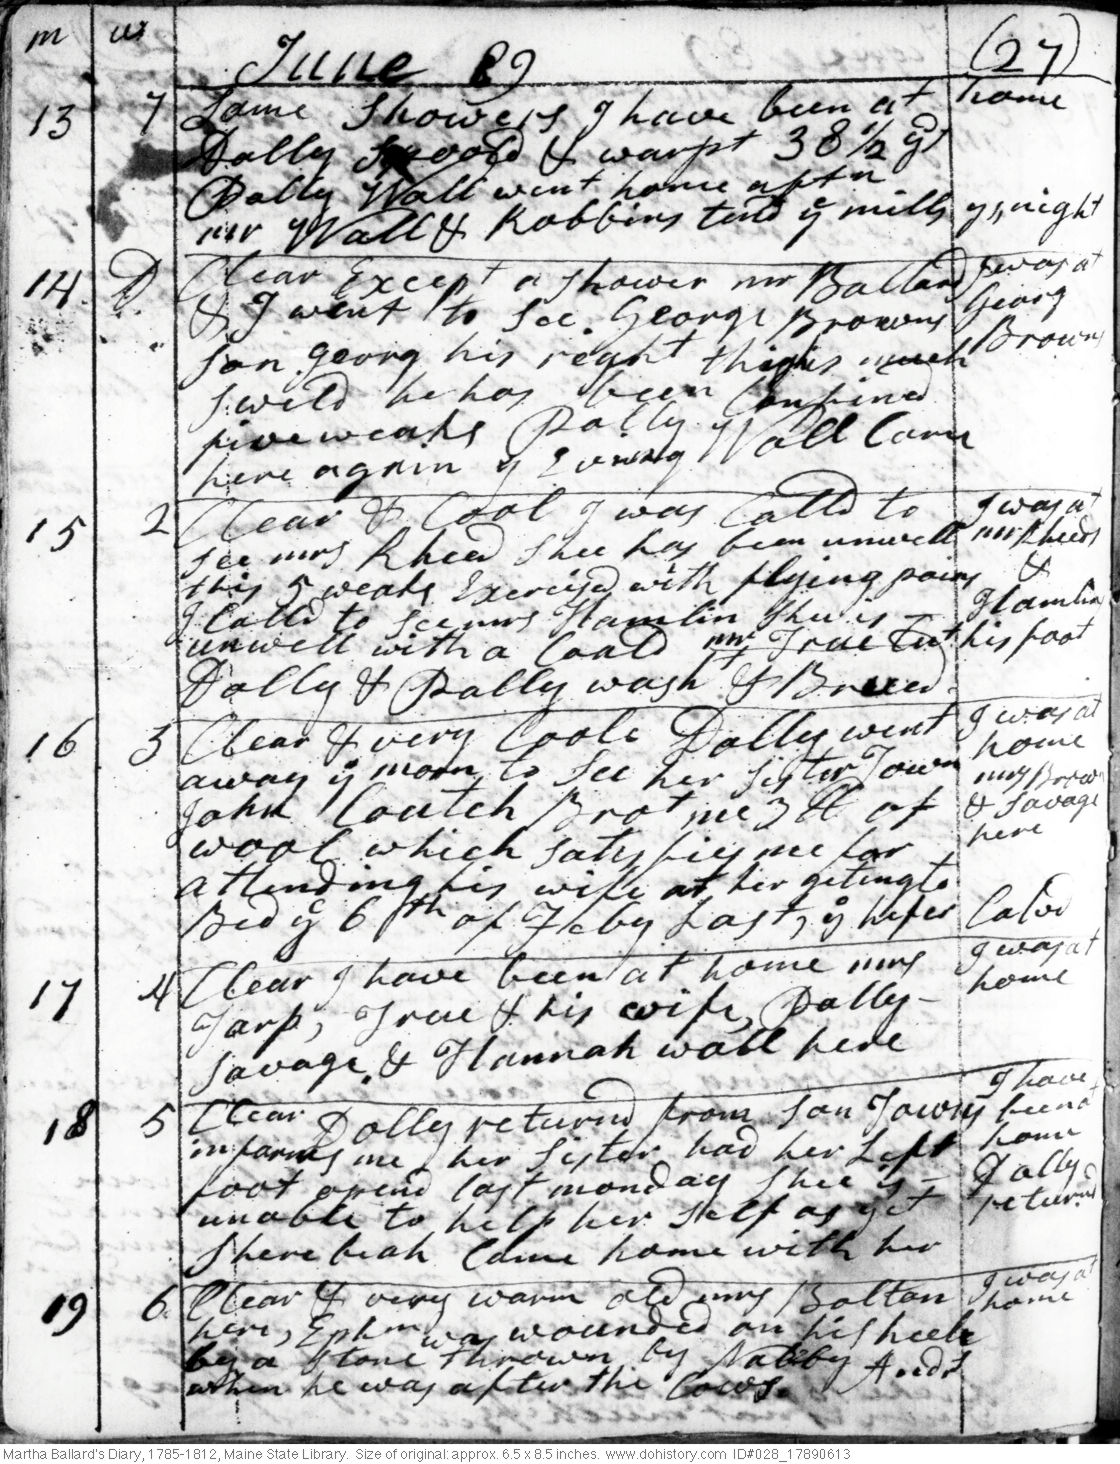 m w June 89 (27)
13 7 Some Showers I have been at home
Dolly spoold & warpt 38 1/2 yds
Polly Wall went home aftn
mr Wall & Robbins tend ye mills ys night
14 D Clear Except a shower mr Ballard I was at
& I went to see George Browns Georg
son Georg his reght thigh is much Browns
sweld he has been Confined
five weaks Polly Wall Came
here again ye Evinng
15 2 Clear & Cool I was Calld to I was at
see mrs Kheed shee has been unwell mr Kheeds
this 5 weaks Exercised with flying pains &
I Calld to see mrs Hamlin shee is Hamlins
unwell with a Coald mr True Cut his foot
Dolly & Polly washt & Brued
16 3 Clear & very Coole Dolly went I was at
away ye morn to see her sister Town home
John Coutch Brot me 3 lb of mrs Brown
wool which satisfies me for & Savage
attending his wife at her geting to here
Bed ye 6th of Feby Last, ye hefer Calvd
17 4 Clear I have been at home mrs I was at
Tarp, True & his wife, Polly home
Savage & Hannah wall here
18 5 Clear Dolly returnd from Son Towns I have
informs me her sister had her Left been at
foot opend last monday shee is home
unable to help her self as yet Dolly
Sherebeah Came home with her returnd
19 6 Clear & very warm old mrs Bolton I was at
here, Ephm was wounded on his heele home
by a stone thrown by Nabby
when he was after the Cows.
Martha Ballard's Diary, 1785-1812, Maine State Library. Size of original: approx. 6.5 x 8.5 inches. www.dohistory.com ID#028_17890613